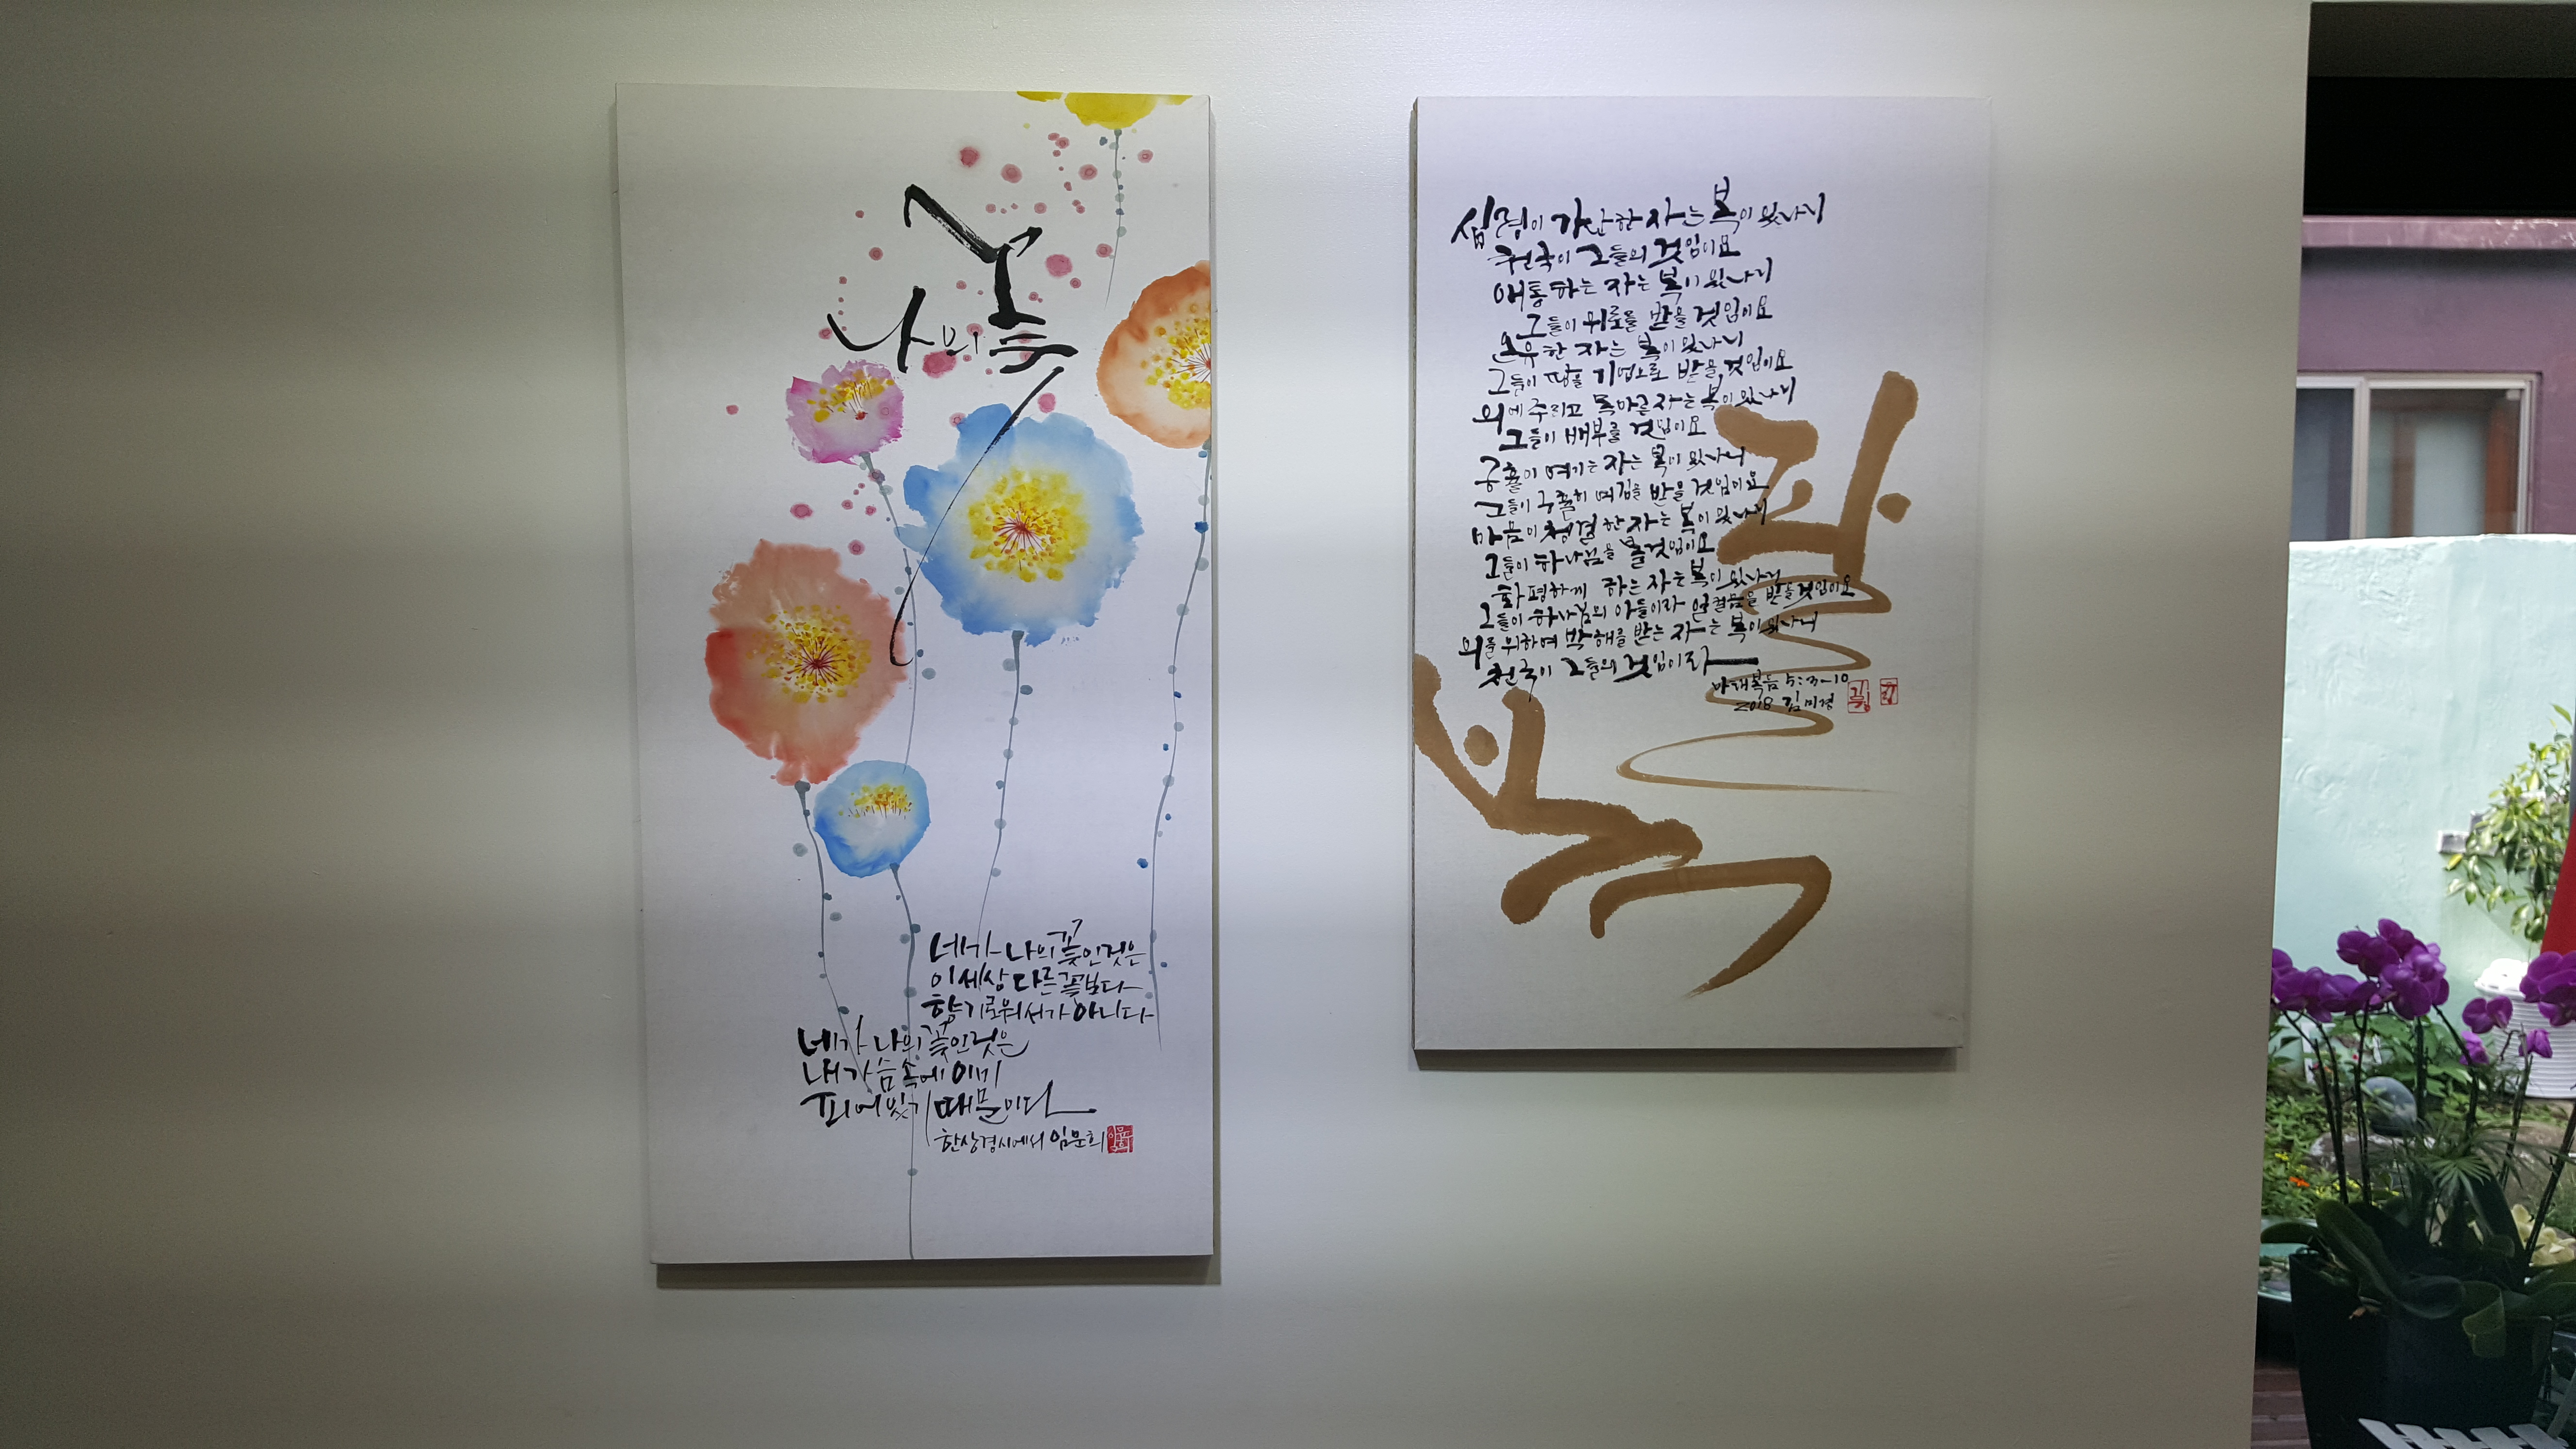 나의 꽃
네가 나의 꽃인 것은
이 세상 다른 꽃보다
향기로워서가 아니다
네가 나의 꽃인 것은
내 가슴속에 이미
피어있기 때문이다
한상경 시에서 임문희
심령이 가난한 자는 복이 있나니
천국이 그들의 것임이요
애통하는 자는 복이 있나니
그들이 위로를 받을 것임이요
온유한 자는 복이 있나니
그들이 땅을 기업으로 받을 것임이요
의에 주리고 목마른 자는 복이 있나니
그들이 배부를 것임이요
긍휼이 여기는 자는 복이 있나니
그들이 긍휼히 여김을 받을 것임이요
마음이 청결한 자는 복이 있나니
그들이 하나님을 볼 것임이요
화평하게 하는 자는 복이 있나니
그들이 하나님의 아들이라 일컬음을 받을 것임이요
의를 위하여 박해를 받는 자는 복이 있나니
천국이 그들의 것임이라
마태복음 5:3~10
2018 김미경
팔
복